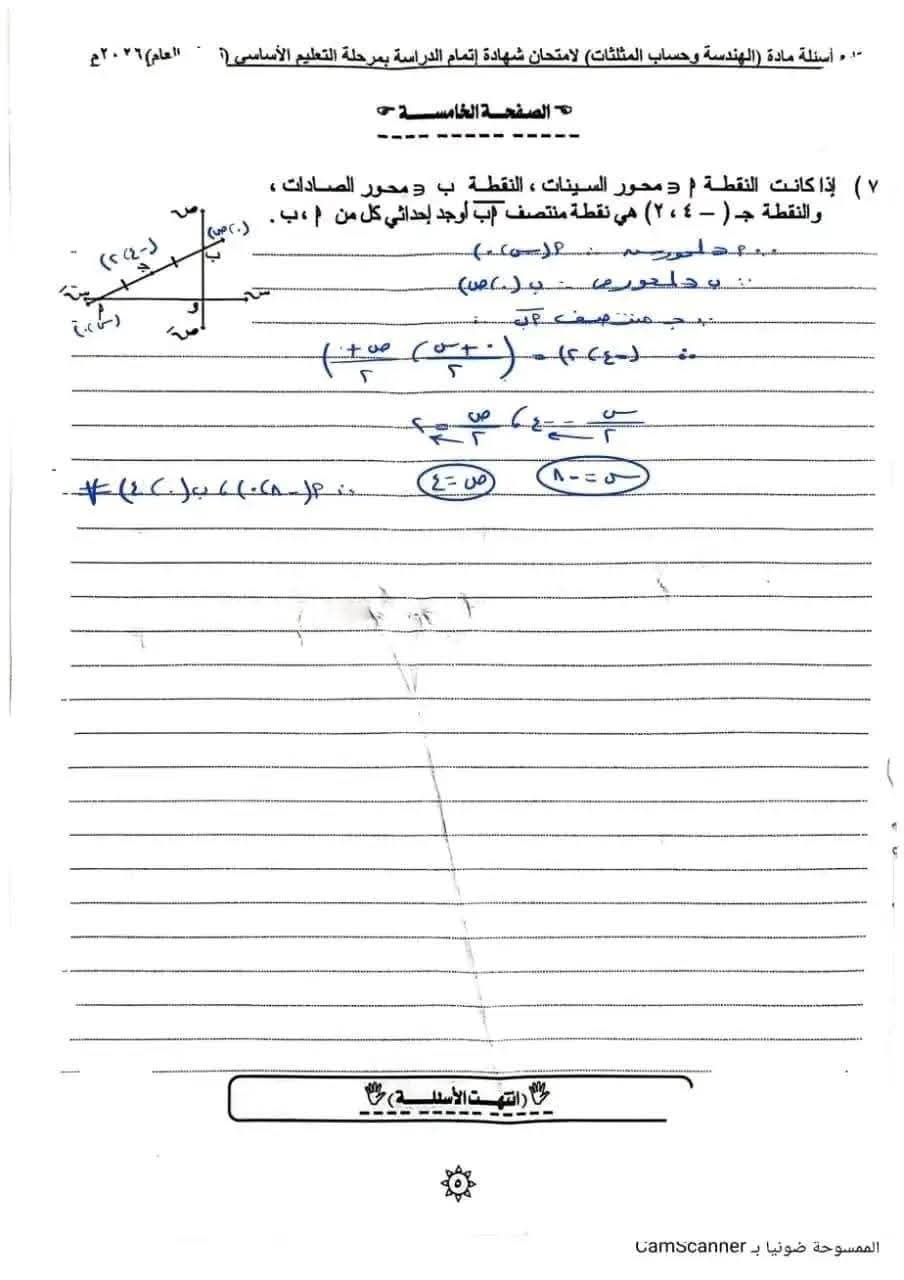 أسئلة مادة (الهندسة وحساب المثلثات) لامتحان شهادة إتمام الدراسة بمرحلة التعليم الأساسي ( العام) ٢٠٢٦م
الصفحة الخامسة
٧ ) إذا كانت النقطة أ ∈ محور السينات ، النقطة ب ∈ محور الصادات ،
والنقطة جـ ( – ٤ ، ٢ ) هي نقطة منتصف أب أوجد إحداثي كل من أ ، ب .
ص
(٠، ص)
ب
(-٤، ٢)
جـ
سَ
س
أ
و
(س، ٠)
صَ
∵ أ ∈ لمحور س ∴ أ(س، ٠)
∵ ب ∈ لمحور ص ∴ ب (٠، ص)
∵ جـ منتصف أب ∴
∴ (-٤، ٢) = (٠ + س / ٢ ، ص + ٠ / ٢)
س / ٢ = -٤ ، ص / ٢ = ٢
س = -٨ ص = ٤ ∴ أ(-٨، ٠) ، ب(٠، ٤)
(انتهت الأسئلة)
٥
الممسوحة ضوئيا بـ CamScanner